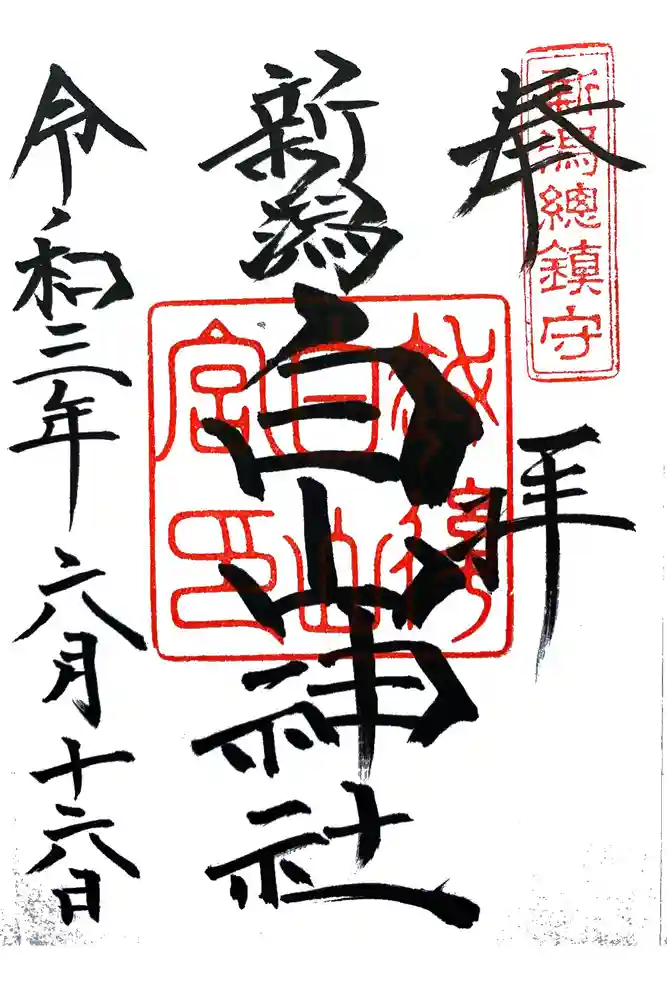 新潟總鎮守
奉拝
新潟白山神社
越後
白山
宮印
令和三年六月十六日